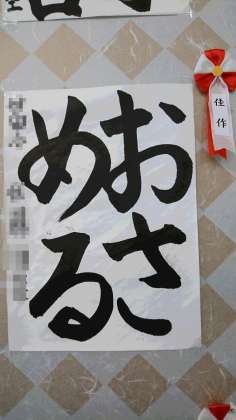 おさ
める
佳作